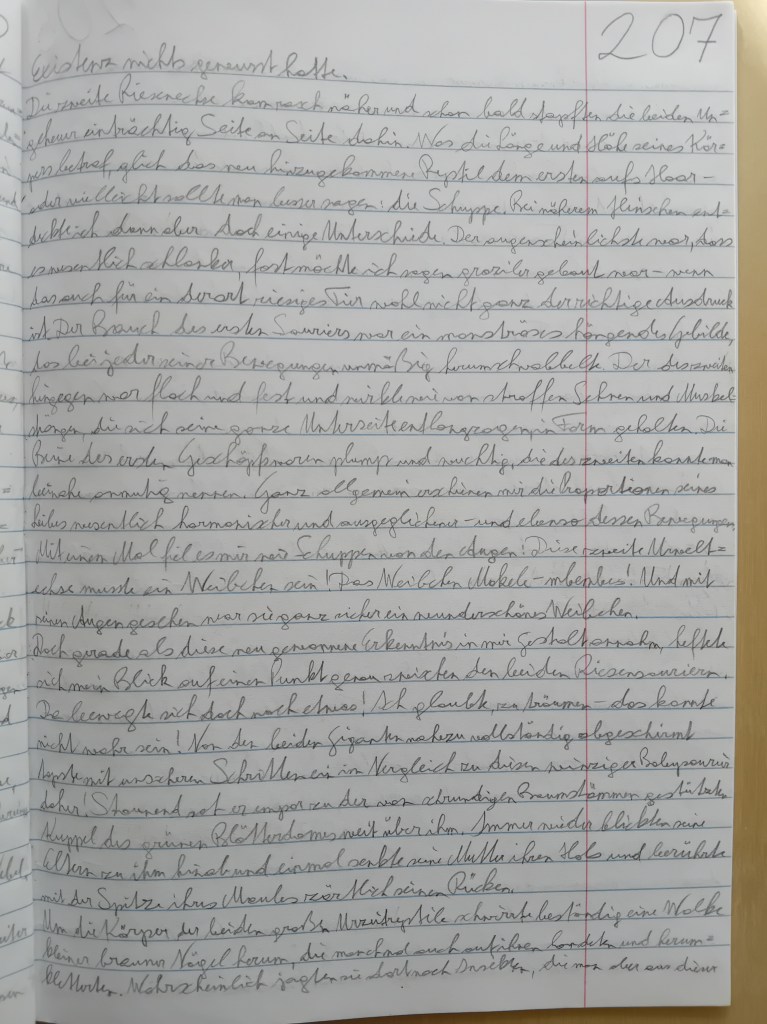 207
Existenz nichts gewusst hatte.
Die zweite Riesenechse kam rasch näher und schon bald stapften die beiden Un=
geheuer einträchtig Seite an Seite dahin. Was die Länge und Höhe seines Kör=
pers betraf, glich das neu hinzugekommene Reptil dem ersten aufs Haar –
oder vielleicht sollte man besser sagen: die Schuppe. Bei näherem Hinsehen ent=
deckte ich dann aber doch einige Unterschiede. Der augenscheinlichste war, dass
es wesentlich schlanker, fast möchte ich sagen graziler gebaut war – wenn
das auch für ein derart riesiges Tier wohl nicht ganz der richtige Ausdruck
ist. Der Bauch des ersten Sauriers war ein monströses hängendes Gebilde,
das bei jeder seiner Bewegungen unmäßig herumschwabbelte. Der des zweiten
hingegen war flach und fest und wirkte wie von straffen Sehnen und Muskel=
strängen, die sich seine ganze Unterseite entlangzogen, in Form gehalten. Die
Beine des ersten Geschöpfs waren plump und wuchtig, die des zweiten konnte man
beinahe anmutig nennen. Ganz allgemein erschienen mir die Proportionen seines
Leibes wesentlich harmonischer und ausgeglichener – und ebenso dessen Bewegungen.
Mit einem Mal fiel es mir wie Schuppen von den Augen: Diese zweite Urwelt=
echse musste ein Weibchen sein! Das Weibchen Mokele-mbembes! Und mit
seinen Augen gesehen war sie ganz sicher ein wunderschönes Weibchen.
Doch gerade als diese neu gewonnene Erkenntnis in mir Gestalt annahm, heftete
sich mein Blick auf einen Punkt genau zwischen den beiden Riesensauriern.
Da bewegte sich doch noch etwas! Ich glaubte, zu träumen – das konnte
nicht wahr sein! Von den beiden Giganten nahezu vollständig abgeschirmt
tapste mit unsicheren Schritten ein im Vergleich zu diesen winziger Babysaurier
daher! Staunend sah er empor zu der von schrundigen Baumstämmen gestützten
Kuppel des grünen Blätterdomes weit über ihm. Immer wieder blickten seine
Eltern zu ihm hinab und einmal senkte seine Mutter ihren Hals und berührte
mit der Spitze ihres Maules zärtlich seinen Rücken.
Um die Körper der beiden großen Urzeitreptile schwirrte beständig eine Wolke
kleiner brauner Vögel herum, die manchmal auch auf ihnen landeten und herum=
kletterten. Wahrscheinlich jagten sie dort nach Insekten, die man aber aus dieser